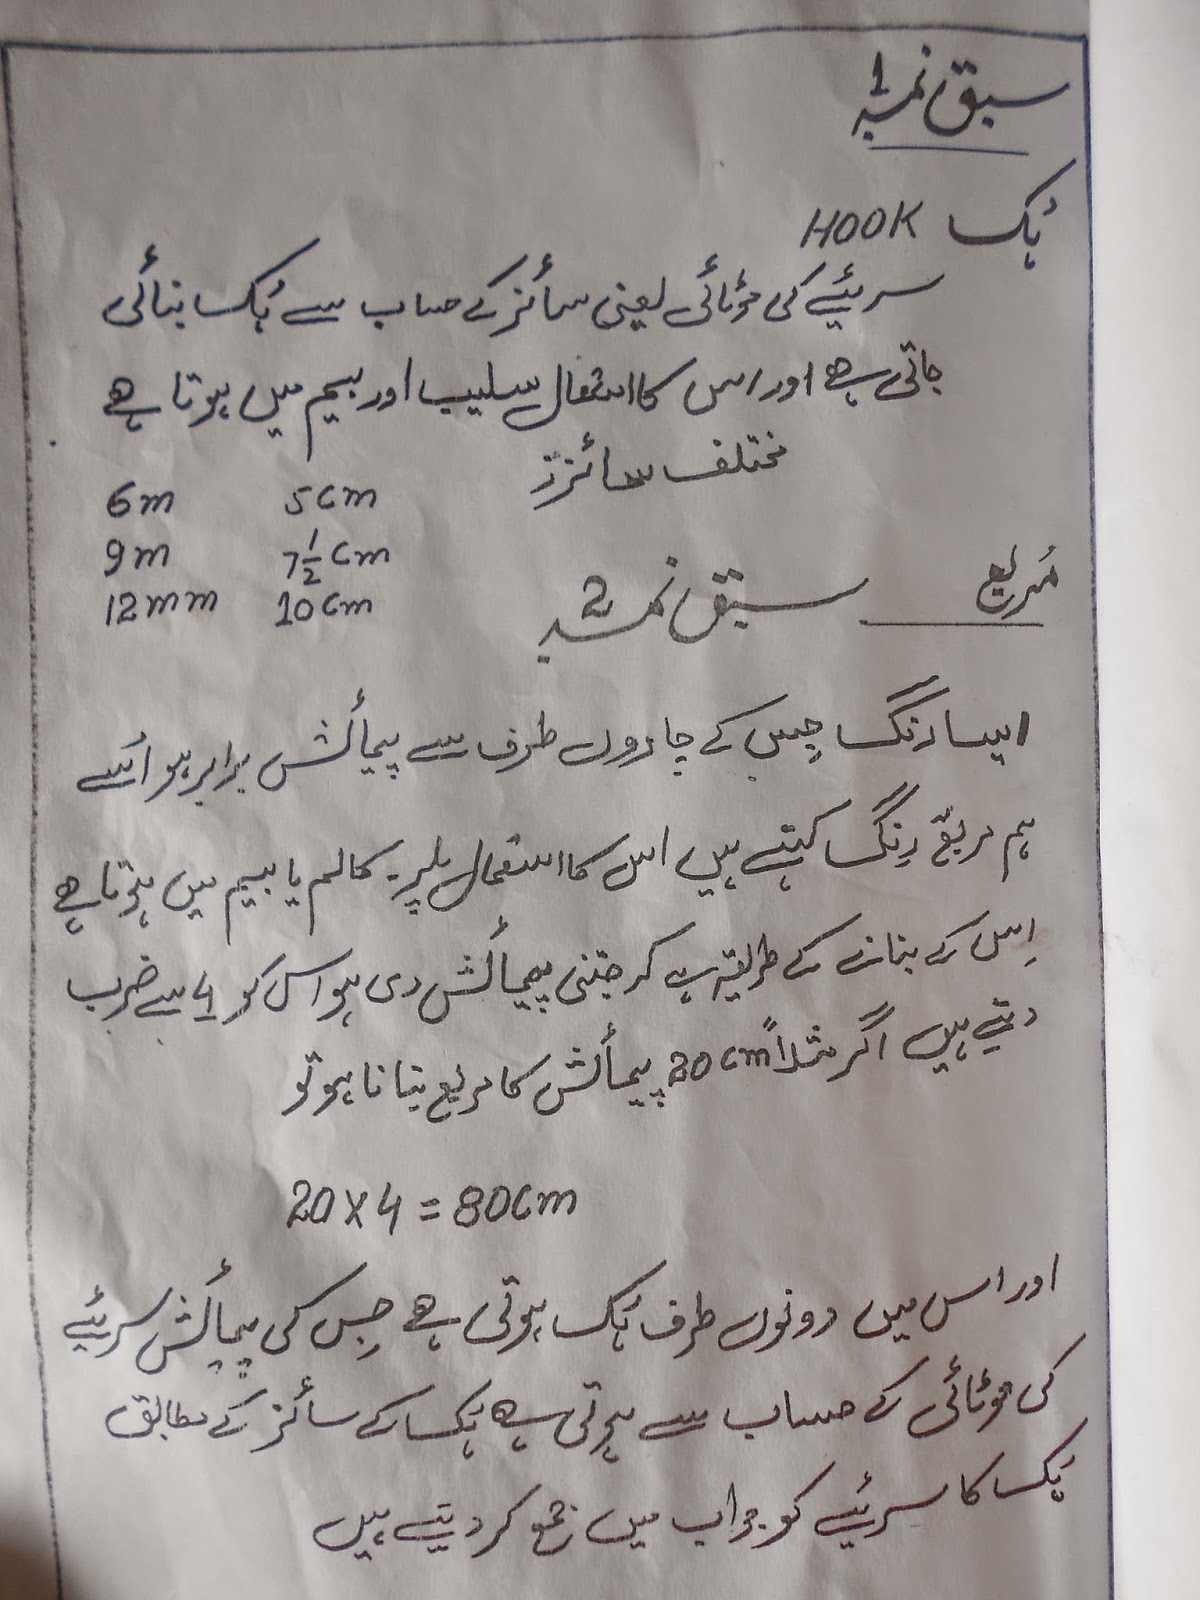 سبق نمبر 1
ہُک HOOK
سریئے کی موٹائی یعنی سائز کے حساب سے ہُک بنائی
جاتی ہے اور اس کا استعمال سلیب اور بیم میں ہوتا ہے
مختلف سائزز
6m 5cm
9m 7½cm
12mm 10cm
مُربع سبق نمبر 2
ایسا رنگ جِس کے چاروں طرف سے پیمائش برابر ہو اُسے
ہم مربع رِنگ کہتے ہیں اس کا استعمال پلر۔ کالم یا بیم میں ہوتا ہے
اِس کے بنانے کے طریقہ ہے کہ جتنی پیمائش دی ہو اس کو 4 سے ضرب
دیتے ہیں اگر مثلاً 20cm پیمائش کا مربع بنانا ہو تو
20 x 4 = 80cm
اور اس میں دونوں طرف ہُک ہوتی ہے جِس کی پیمائش سریئے
کی موٹائی کے حساب سے ہوتی ہے ہُک کے سائز کے مطابق
ہُک کا سریئے کو جواب میں جمع کر دیتے ہیں